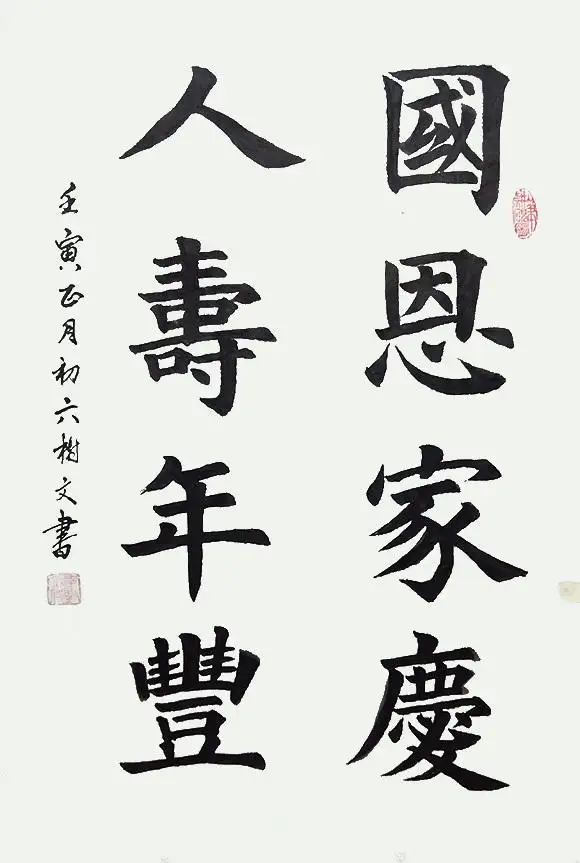 國恩家慶
人壽年豐
壬寅正月初六樹文書